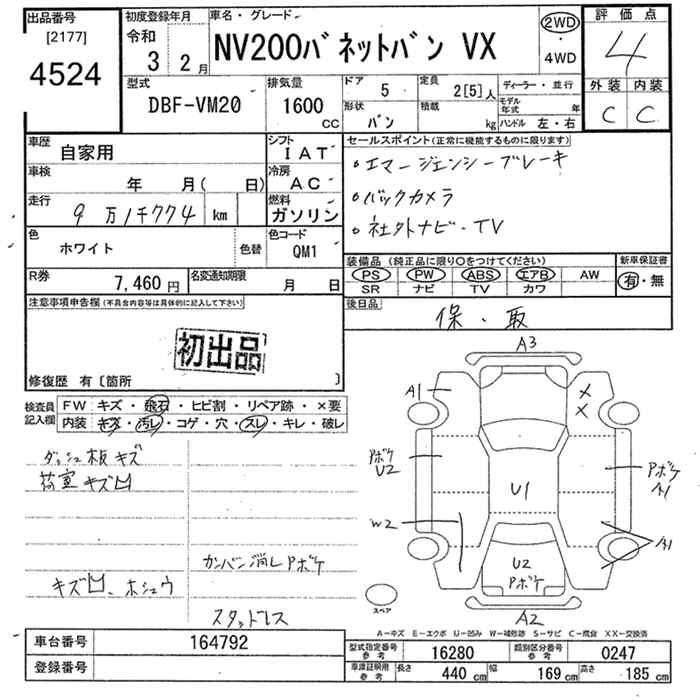 出品番号 [2177] 4524
初度登録年月 令和 3 2月
車名・グレード NV200バネットバン VX
2WD 4WD
評価点 4
型式 DBF-VM20
排気量 1600 CC
ドア 5 定員 2[5]人 ディーラー・並行
形状 バン 積載 kg モデル年式 年 ハンドル 左・右
外装 内装
C C
車歴 自家用
シフト IAT
車検 年 月( 日)
冷房 AC
走行 9万1千774 km
燃料 ガソリン
色 ホワイト 色替
色コード QM1
R券 7,460円 名変通知期限 月 日
セールスポイント(正常に機能するものに限ります)
・エマージェンシーブレーキ
・バックカメラ
・社外ナビ・TV
装備品 (純正品に限り○をつけてください) 新車保証書
PS PW ABS エアB AW 有・無
SR ナビ TV カワ
後日品 保・取
注意事項申告欄(不具合内容等は具体的に記入して下さい)
初出品
修復歴 有〔箇所 〕
検査員記入欄 FW キズ・飛石・ヒビ割・リペア跡・×要
内装 キズ・汚レ・コゲ・穴・スレ・キレ・破レ
ダッシュ板キズ
荷室キズ凹
カンバン消しPボケ
キズ凹、ホシュウ
スタッドレス
A3
A1
×
×
Pボケ
U2
Pボケ
A1
U1
W2
A1
U2
Pボケ
スペア
A2
A-キズ E-エクボ U-凹み W-補修跡 S-サビ C-腐食 XX-交換済
車台番号 164792
登録番号
型式指定番号 参考 16280 類別区分番号 参考 0247
車庫証明用 参考 長さ 440 cm 幅 169 cm 高さ 185 cm